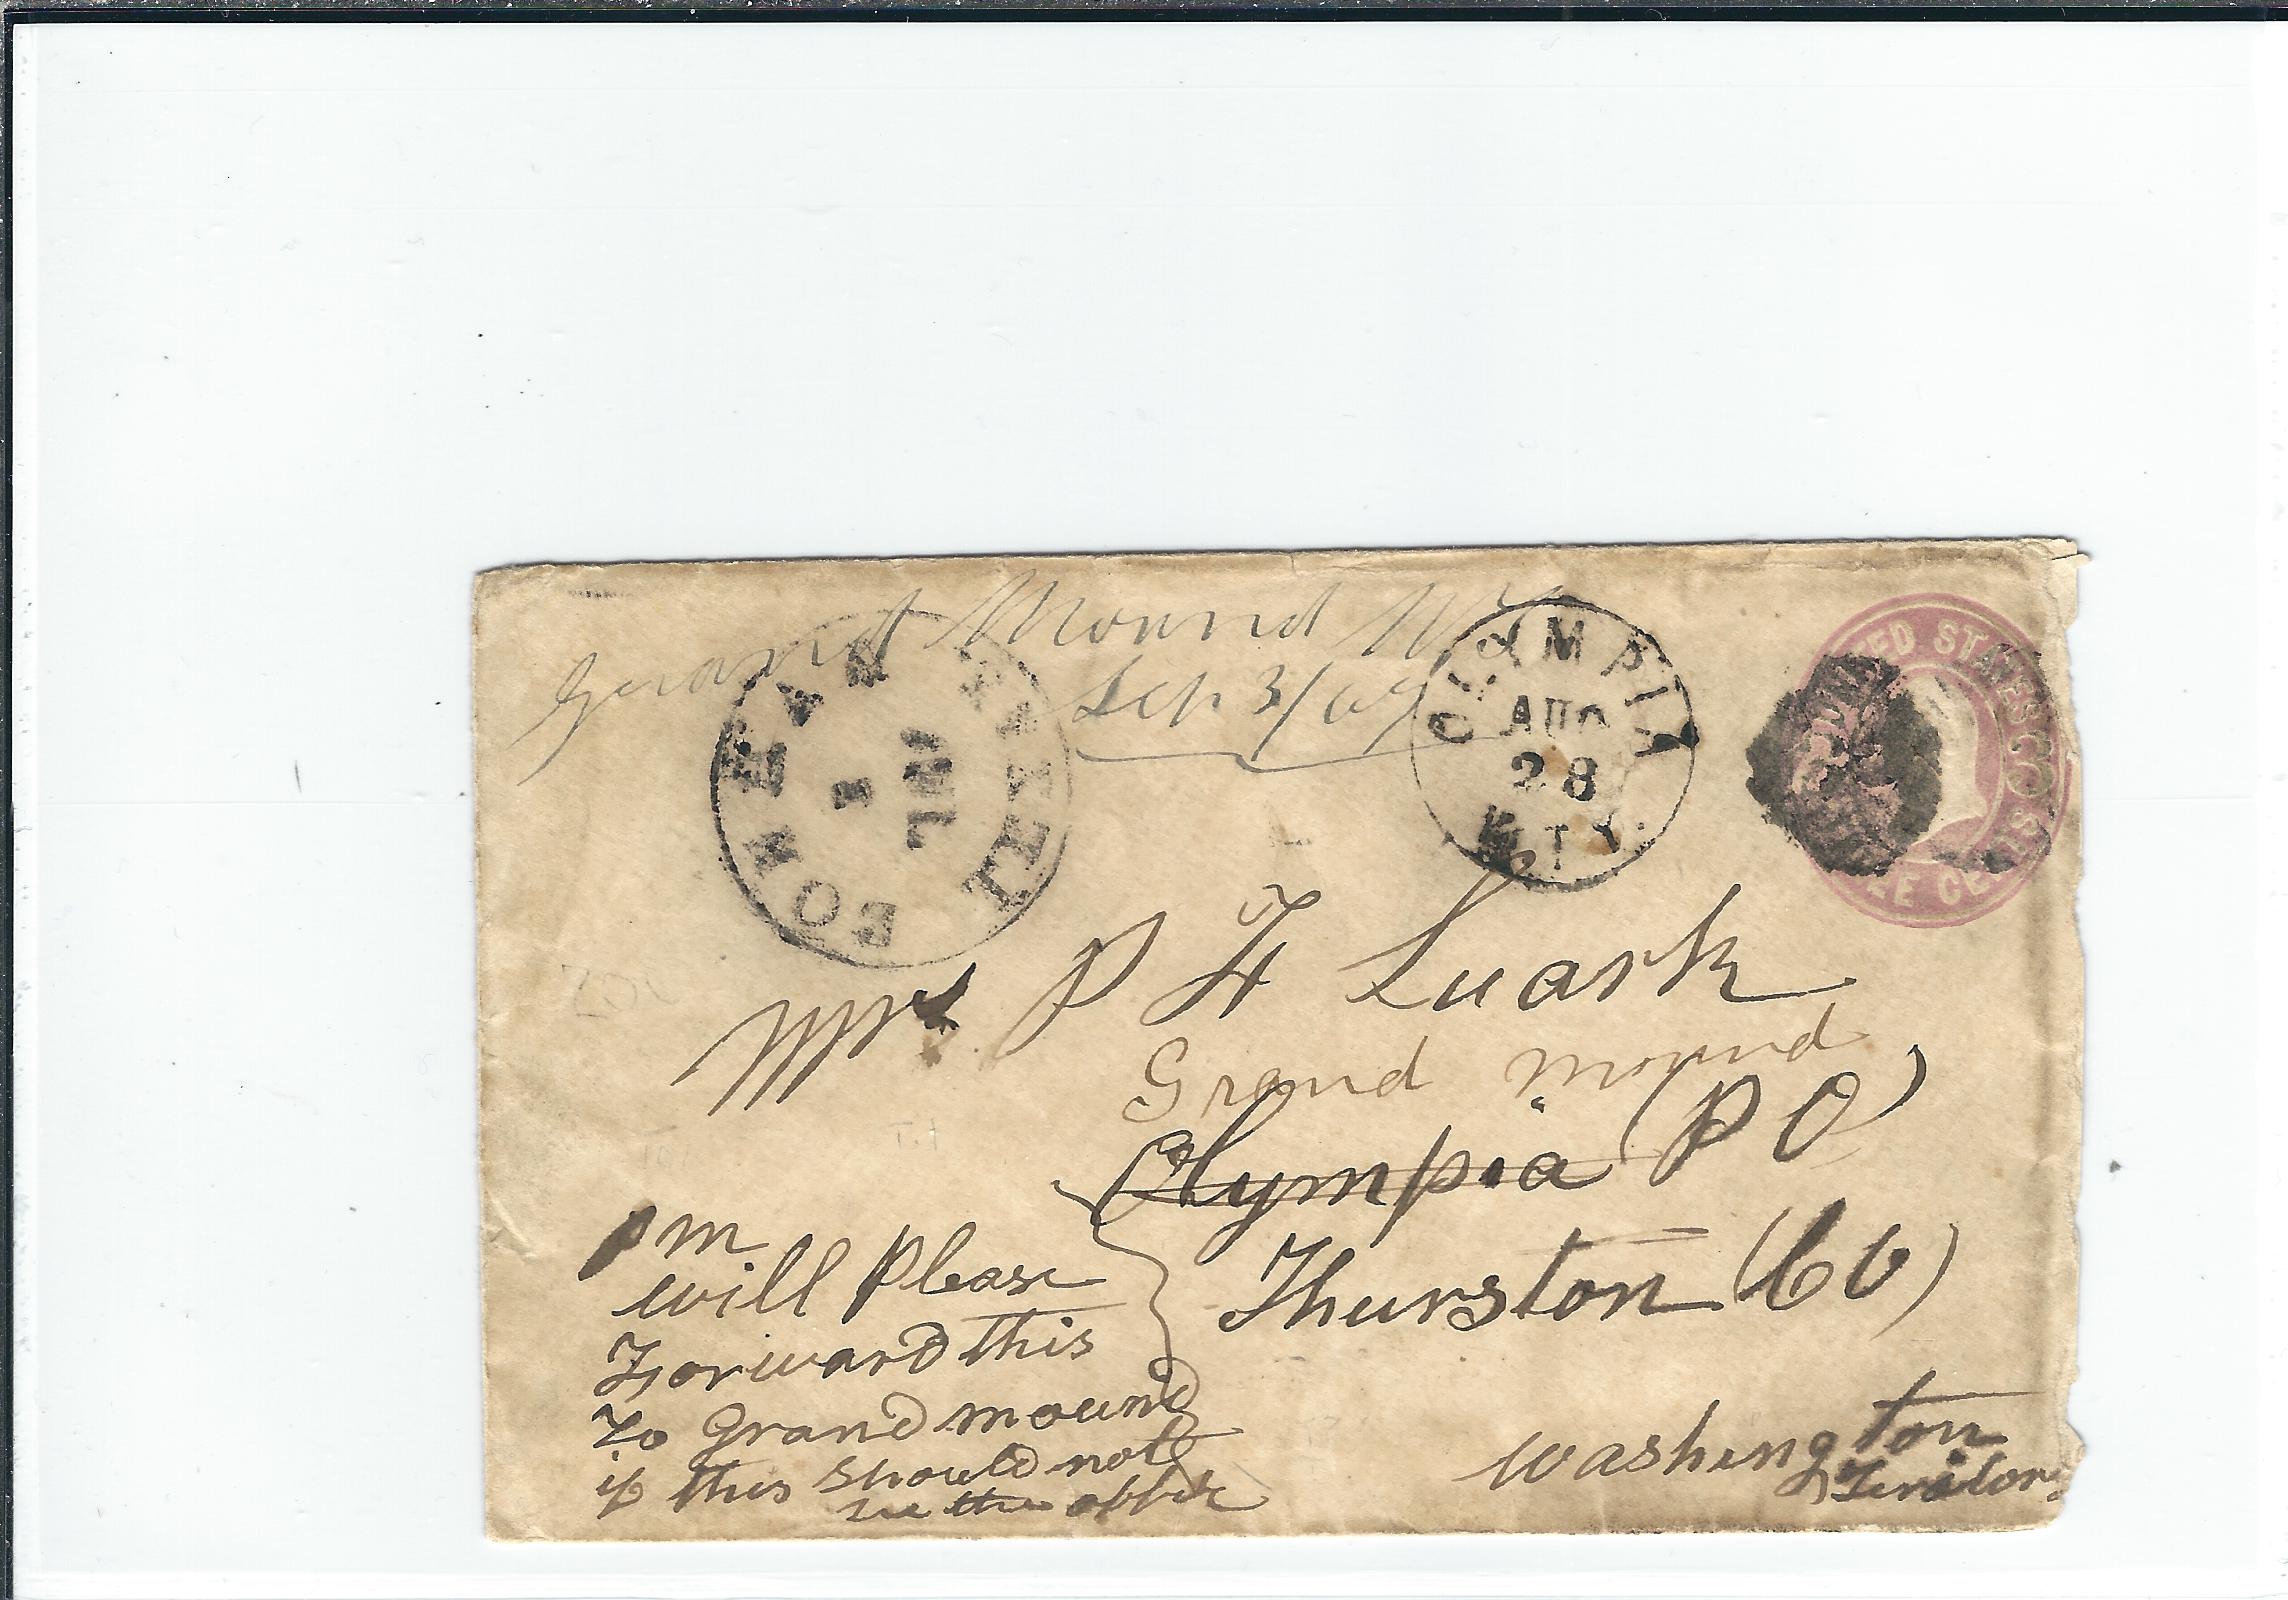 Grand Mound WT
Sep 3/69
OLYMPIA
AUG
28
W.TY.
UNITED STATES
THREE CENTS
JUL
Mrs P H Luark
Grand Mound
Olympia (P O)
Thurston (Co)
Washington
Teritory
P m
will Please
Forward this
To Grand mound
if this should not
be the office